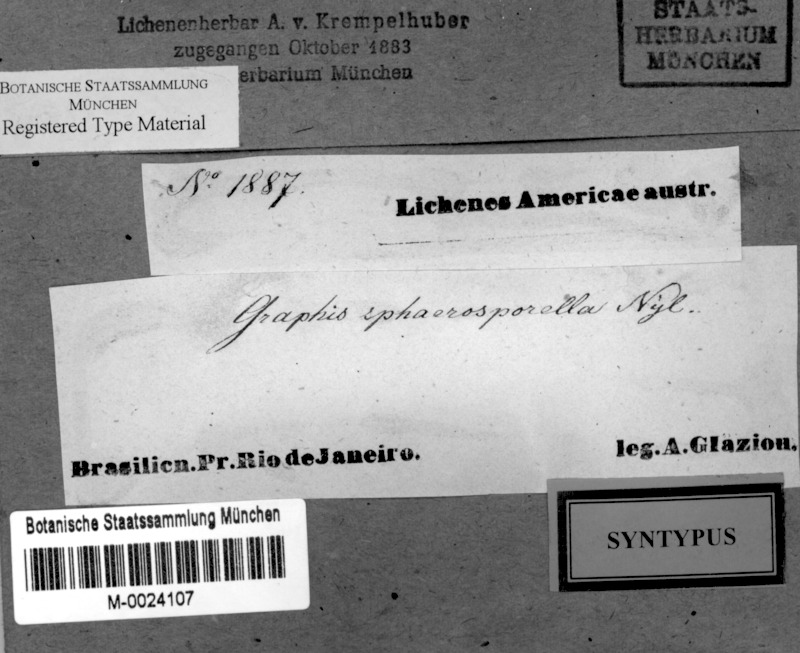 Lichenenherbar A. v. Krempelhuber
zugegangen Oktober 1883
erbarium München
STAATS-
HERBARIUM
MÜNCHEN
BOTANISCHE STAATSSAMMLUNG
MÜNCHEN
Registered Type Material
No 1887.
Lichenes Americae austr.
Graphis sphaerosporella Nyl..
Brasilien. Pr. Rio de Janeiro.
leg. A. Glaziou,
Botanische Staatssammlung München
M-0024107
SYNTYPUS